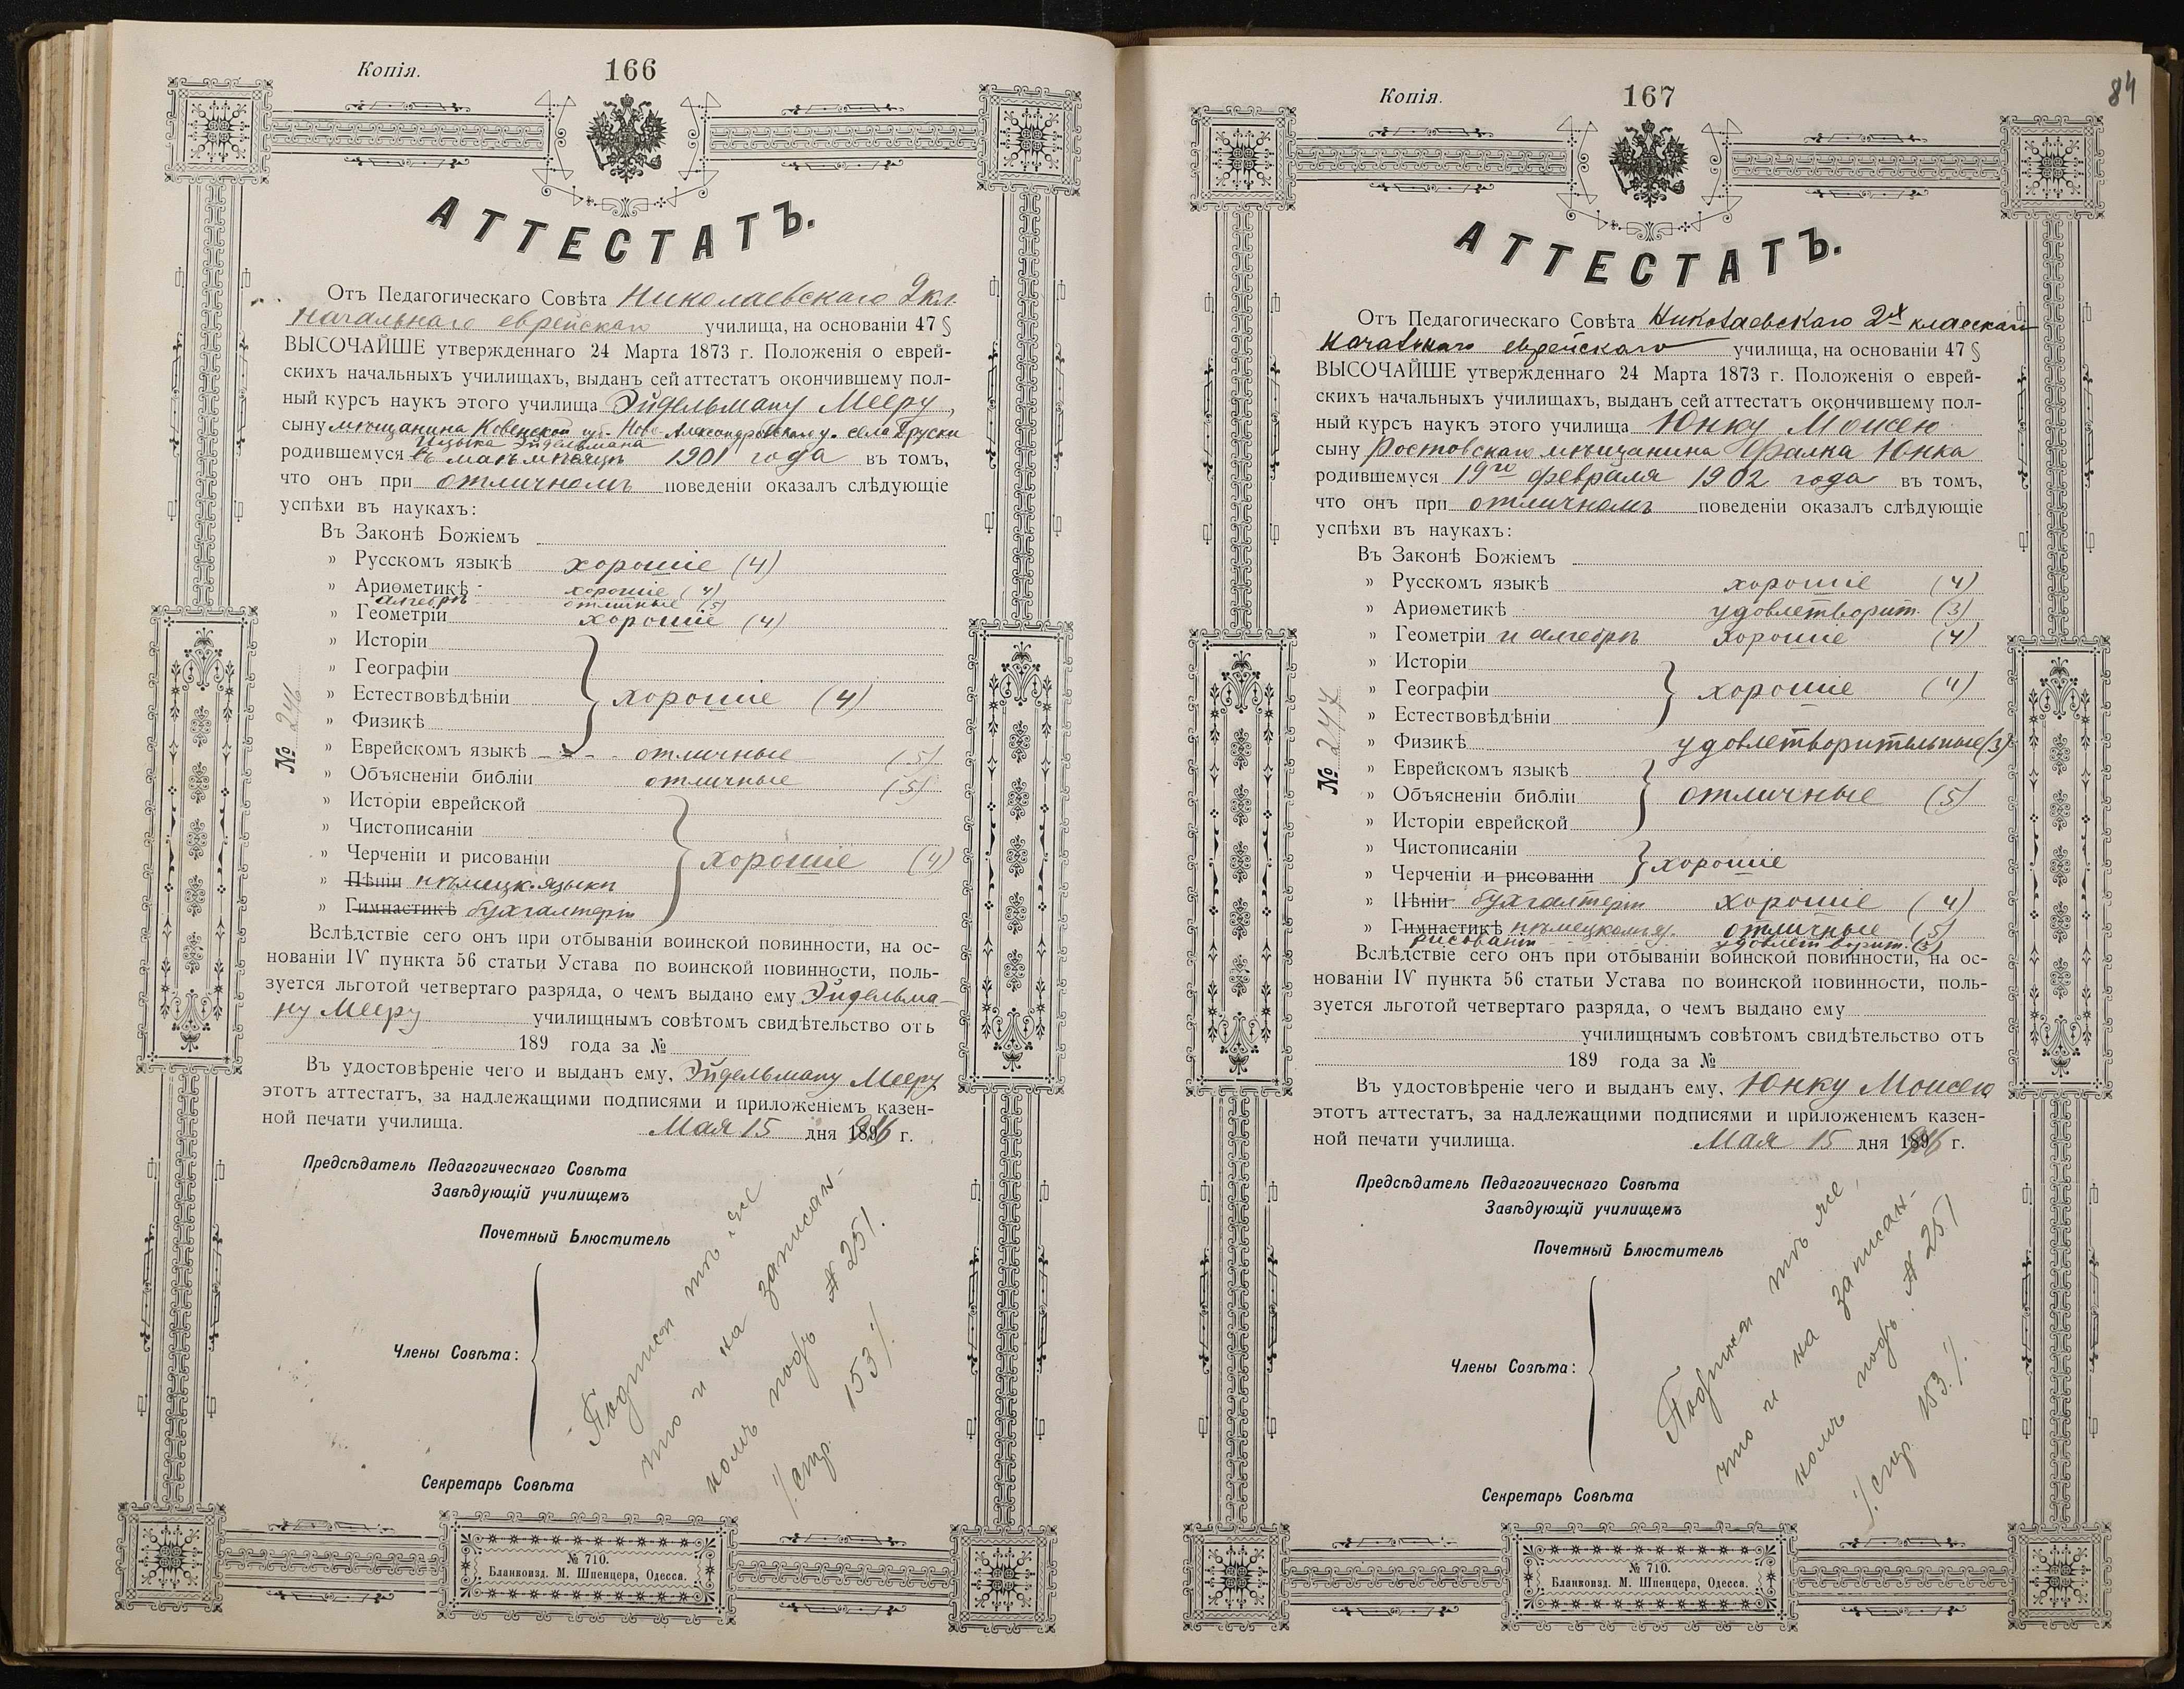 Копія.
166
АТТЕСТАТЪ.
Отъ Педагогическаго Совѣта Николаевскаго 2 кл.
Начальнаго еврейскаго училища, на основаніи 47 §
ВЫСОЧАЙШЕ утвержденнаго 24 Марта 1873 г. Положенія о еврей-
скихъ начальныхъ училищахъ, выданъ сей аттестатъ окончившему пол-
ный курсъ наукъ этого училища Эйдельману Мееру,
сыну мѣщанина Ковенской губ. Ново-Александровскаго у. села
Эйдельмана
родившемуся въ маѣ мѣсяцѣ 1901 года въ томъ,
что онъ при отличномъ поведеніи оказалъ слѣдующіе
успѣхи въ наукахъ:
Въ Законѣ Божіемъ
» Русскомъ языкѣ хорошіе (4)
» Ариѳметикѣ хорошіе (4)
алгебрѣ отличные (5)
» Геометріи хорошіе (4)
» Исторіи
» Географіи
» Естествовѣдѣніи хорошіе (4)
» Физикѣ
» Еврейскомъ языкѣ отличные (5)
» Объясненіи библіи отличные (5)
» Исторіи еврейской
» Чистописаніи
» Черченіи и рисованіи хорошіе (4)
» Пѣніи нѣмецк. языкѣ
» Гимнастикѣ бухгалтеріи
№ 246
Вслѣдствіе сего онъ при отбываніи воинской повинности, на ос-
нованіи IV пункта 56 статьи Устава по воинской повинности, поль-
зуется льготой четвертаго разряда, о чемъ выдано ему Эйдельма-
ну Мееру училищнымъ совѣтомъ свидѣтельство отъ
189 года за №
Въ удостовѣреніе чего и выданъ ему, Эйдельману Мееру
этотъ аттестатъ, за надлежащими подписями и приложеніемъ казен-
ной печати училища. Мая 15 дня 1916 г.
Предсѣдатель Педагогическаго Совѣта
Завѣдующій училищемъ
Почетный Блюститель
Члены Совѣта:
Секретарь Совѣта
Подписи тѣ же
что и на записан-
номъ подъ № 251.
/.стр. 153/.
№ 710.
Бланкоизд. М. Шпенцера, Одесса.
Копія.
167
84
АТТЕСТАТЪ.
Отъ Педагогическаго Совѣта Николаевскаго 2х класскаго
Начальнаго еврейскаго училища, на основаніи 47 §
ВЫСОЧАЙШЕ утвержденнаго 24 Марта 1873 г. Положенія о еврей-
скихъ начальныхъ училищахъ, выданъ сей аттестатъ окончившему пол-
ный курсъ наукъ этого училища Юнку Моисею
сыну Ростовскаго мѣщанина Фалка Юнка
родившемуся 19го февраля 1902 года въ томъ,
что онъ при отличномъ поведеніи оказалъ слѣдующіе
успѣхи въ наукахъ:
Въ Законѣ Божіемъ
» Русскомъ языкѣ хорошіе (4)
» Ариѳметикѣ удовлетворит. (3)
» Геометріи и алгебрѣ хорошіе (4)
» Исторіи
» Географіи хорошіе (4)
» Естествовѣдѣніи
» Физикѣ удовлетворительные (3)
» Еврейскомъ языкѣ
» Объясненіи библіи отличные (5)
» Исторіи еврейской
» Чистописаніи
хорошіе
» Черченіи и рисованіи
» Пѣніи бухгалтеріи хорошіе (4)
» Гимнастикѣ нѣмецкому отличные (5)
рисованіи удовлетворит. (3)
№ 247
Вслѣдствіе сего онъ при отбываніи воинской повинности, на ос-
нованіи IV пункта 56 статьи Устава по воинской повинности, поль-
зуется льготой четвертаго разряда, о чемъ выдано ему
училищнымъ совѣтомъ свидѣтельство отъ
189 года за №
Въ удостовѣреніе чего и выданъ ему, Юнку Моисею
этотъ аттестатъ, за надлежащими подписями и приложеніемъ казен-
ной печати училища. Мая 15 дня 1916 г.
Предсѣдатель Педагогическаго Совѣта
Завѣдующій училищемъ
Почетный Блюститель
Члены Совѣта:
Секретарь Совѣта
Подписи тѣ же,
что и на записан-
номъ подъ № 251
/.стр. 153./.
№ 710.
Бланкоизд. М. Шпенцера, Одесса.